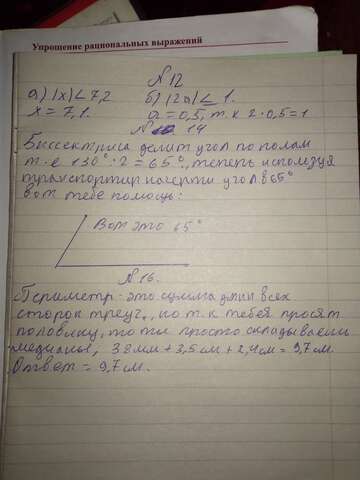 Упрощение рациональных выражений
№12
а) |x| < 7,2 б) |2a| ≤ 1.
x = 7,1. a = 0,5, т.к 2·0,5=1
№ 14
Биссектриса делит угол по полам
т.е 130°:2 = 65°, теперь используя
транспортир начерти угол в 65°
вот тебе помощь:
Вот это 65°
№16.
Периметр - это сумма длин всех
сторон треуг., но т.к тебя просят
половину, то ты просто складываем
медианы, 38мм + 3,5 см + 2,4 см = 9,7 см.
Ответ = 9,7 см.